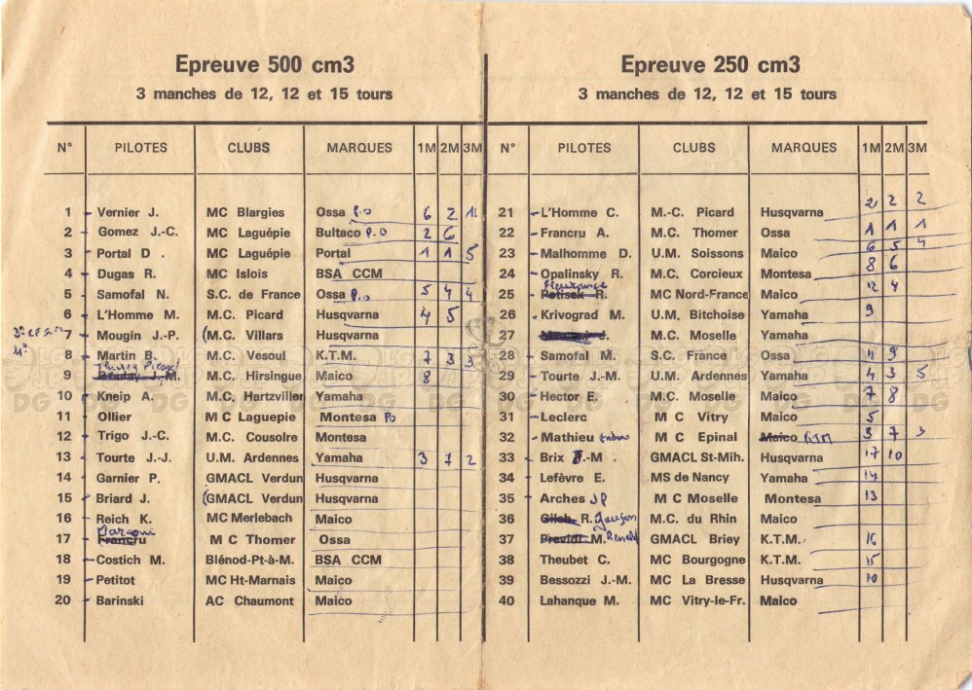 Epreuve 500 cm3
3 manches de 12, 12 et 15 tours
N° PILOTES CLUBS MARQUES 1M 2M 3M
1 Vernier J. MC Blargies Ossa P.O 6 2
2 Gomez J.-C. MC Laguépie Bultaco P.O 2 6
3 Portal D . MC Laguépie Portal 1 1 5
4 Dugas R. MC Islois BSA CCM
5 Samofal N. S.C. de France Ossa P.O 5 4 4
6 L'Homme M. M.C. Picard Husqvarna 4 5
7 Mougin J.-P. (M.C. Villars Husqvarna
8 Martin B. M.C. Vesoul K.T.M. 7 3 3
9 M.C. Hirsingue Maico 8
10 Kneip A. M.C. Hartzviller Yamaha
11 Ollier M C Laguepie Montesa Po
12 Trigo J.-C. M.C. Cousolre Montesa
13 Tourte J.-J. U.M. Ardennes Yamaha 3 7 2
14 Garnier P. GMACL Verdun Husqvarna
15 Briard J. (GMACL Verdun Husqvarna
16 Reich K. MC Merlebach Maico
17 Francru M C Thomer Ossa
18 Costich M. Blénod-Pt-à-M. BSA CCM
19 Petitot MC Ht-Marnais Maico
20 Barinski AC Chaumont Maico
Epreuve 250 cm3
3 manches de 12, 12 et 15 tours
N° PILOTES CLUBS MARQUES 1M 2M 3M
21 L'Homme C. M.-C. Picard Husqvarna 2 2 2
22 Francru A. M.C. Thomer Ossa 1 1 1
23 Malhomme D. U.M. Soissons Maico 6 5 4
24 Opalinsky R. M.C. Corcieux Montesa 8 6
25 Petisek R. MC Nord-France Maico 12 4
26 Krivograd M. U.M. Bitchoise Yamaha 9
27 M.C. Moselle Yamaha
28 Samofal M. S.C. France Ossa 11 9
29 Tourte J.-M. U.M. Ardennes Yamaha 4 3 5
30 Hector E. M.C. Moselle Maico 7 8
31 Leclerc M C Vitry Maico 5
32 Mathieu M C Epinal Maico KTM 3 7 3
33 Brix J.-M . GMACL St-Mih. Husqvarna 17 10
34 Lefèvre E. MS de Nancy Yamaha 14
35 Arches JP M C Moselle Montesa 13
36 R. M.C. du Rhin Maico
37 Previdi M. GMACL Briey K.T.M. 16
38 Theubet C. MC Bourgogne K.T.M. 15
39 Bessozzi J.-M. MC La Bresse Husqvarna 10
40 Lahanque M. MC Vitry-le-Fr. Maico